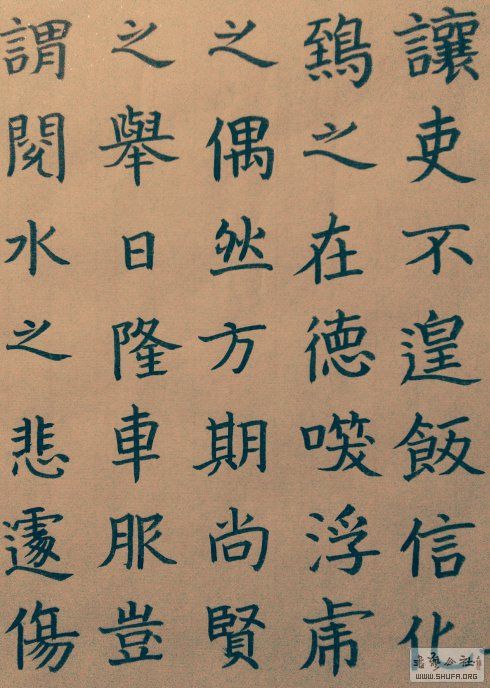 讓吏不遑飯信化
鵄之在德浮虎
之偶然方期尚賢
之舉日隆車服豈
謂閱水之悲遽傷
WWW.SHUFA.ORG